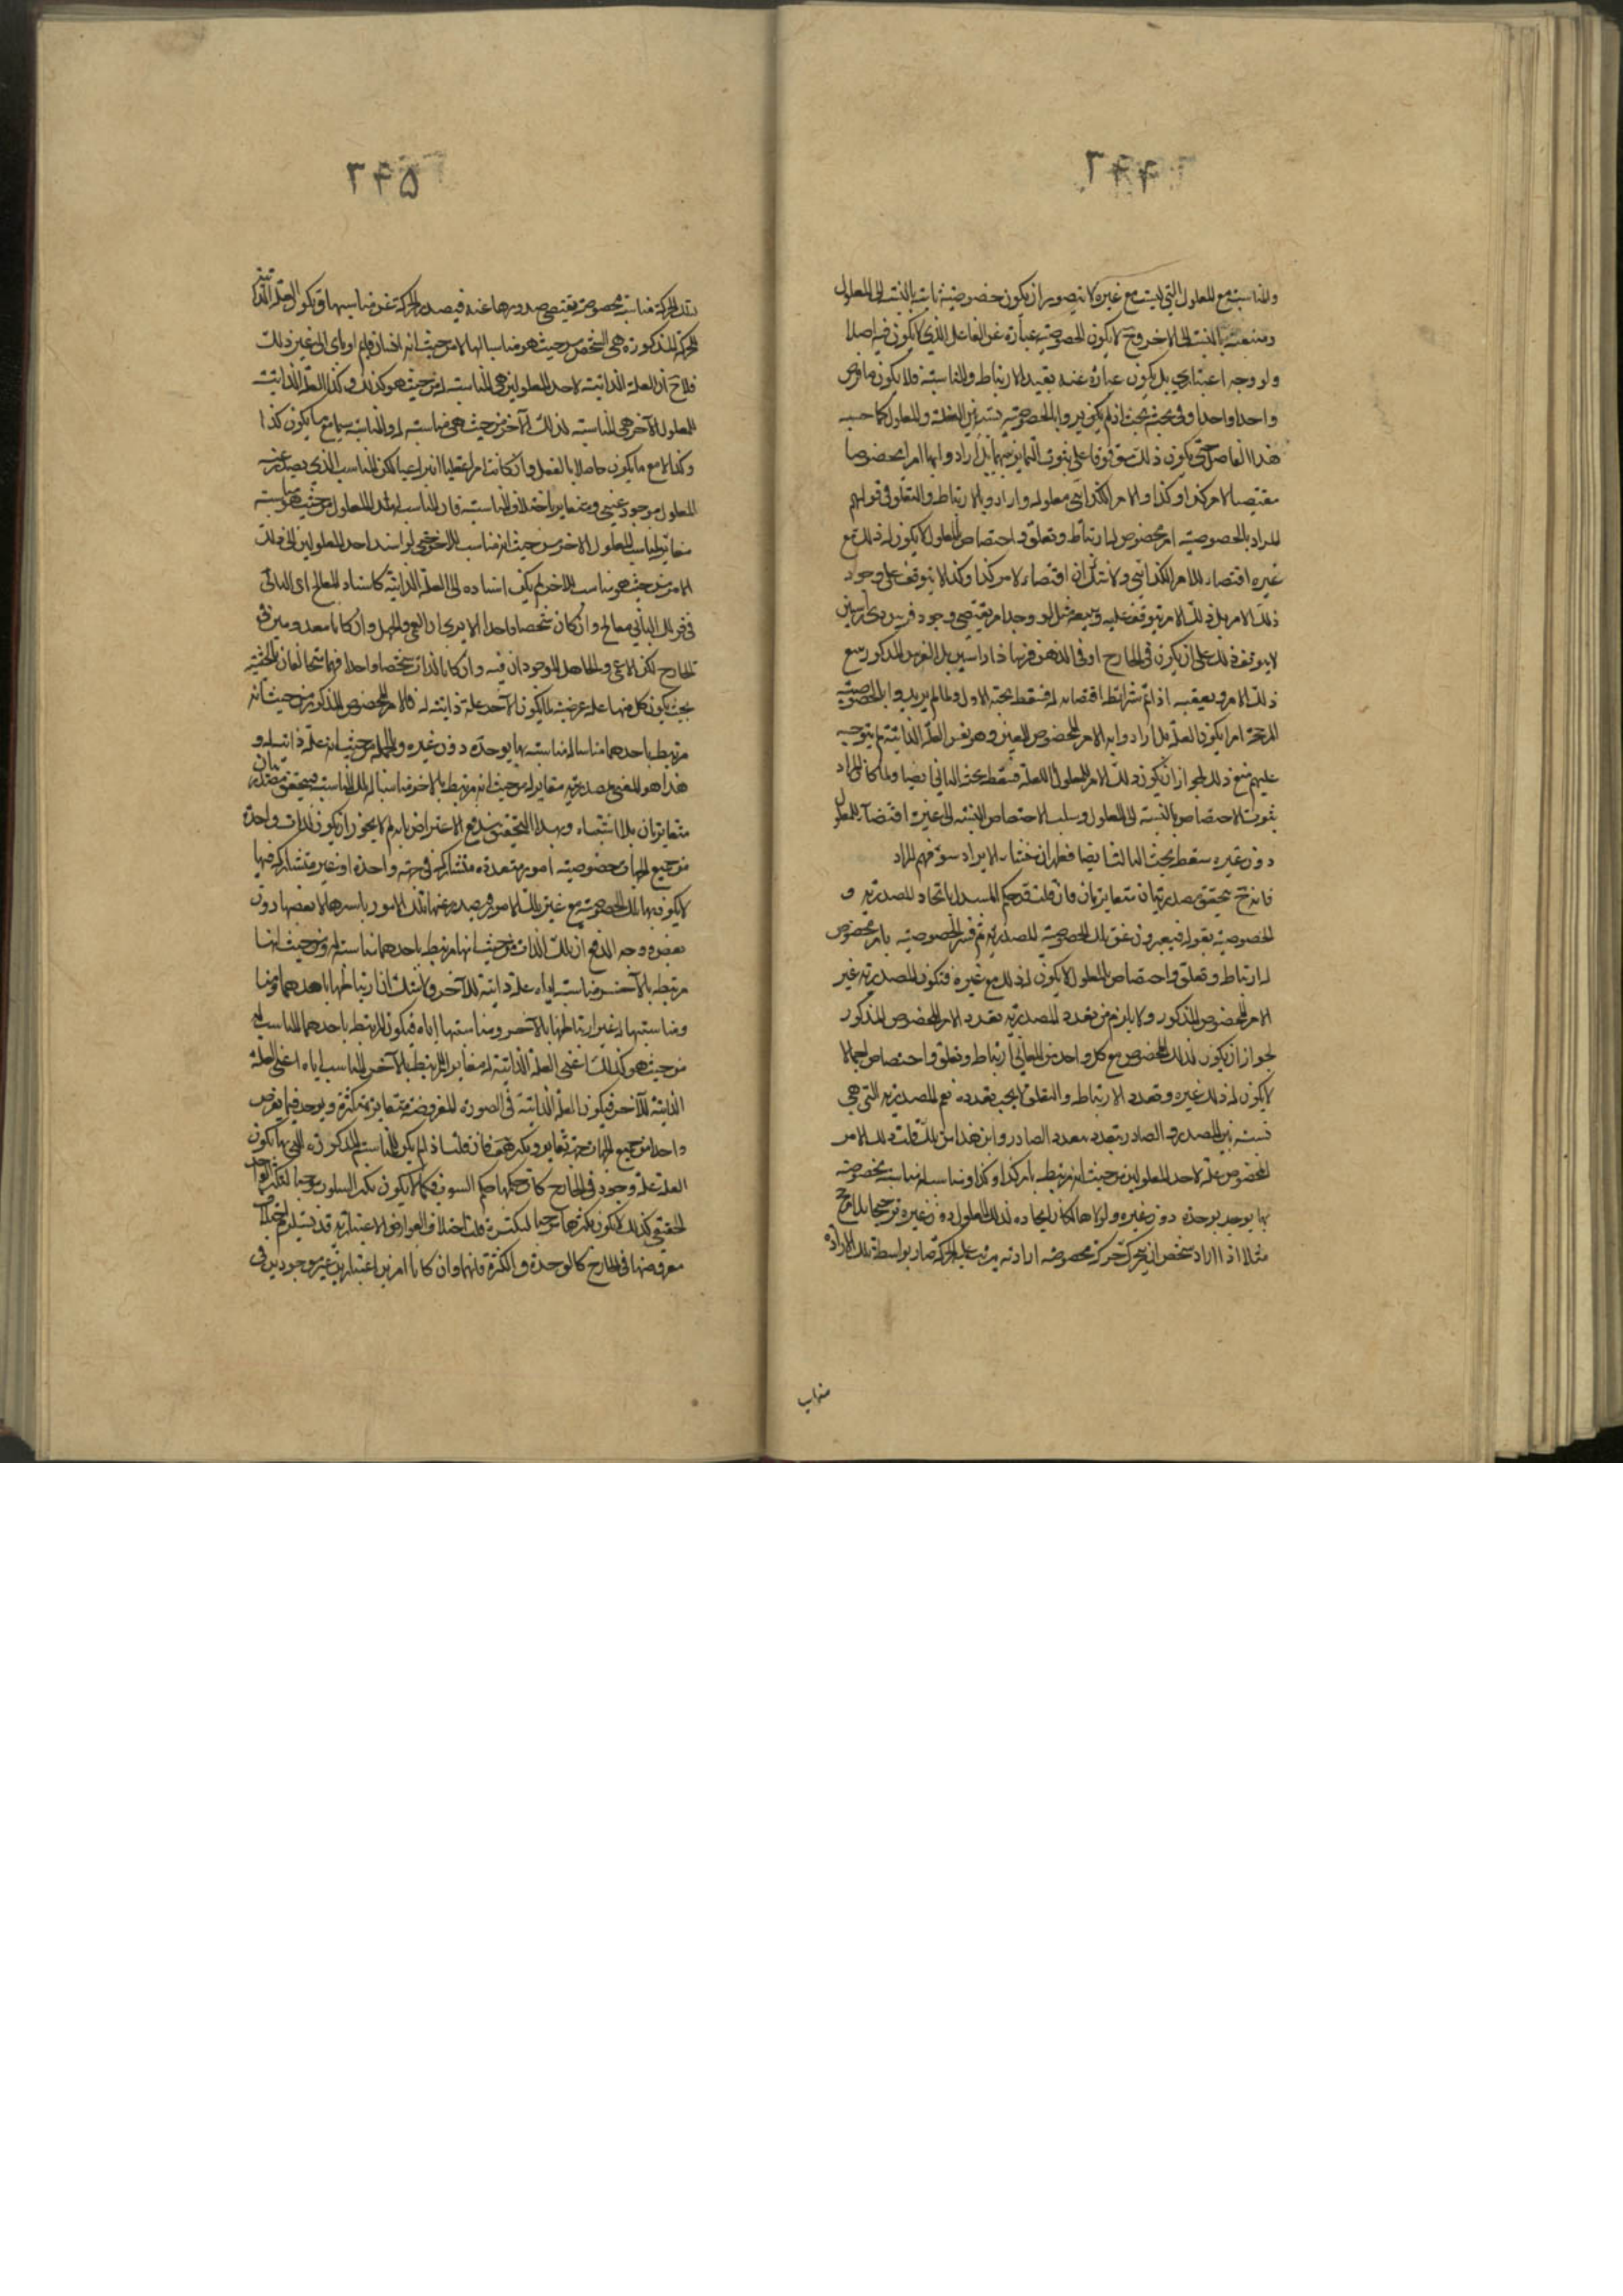 ۲۴۴
والمناسبة مع المعلول التي ليست مع غيره لا يتصور ان يكون خصوصية ثابتة بالنسبة الى المعلول
ومنتفية بالنسبة الى الاخر وح لا يكون الخصوصية عبارة عن الفاعل الذي لا يكون فيه اصلا
ولو وجه اعتباري بل يكون عبارة عنه بقيد الارتباط والمناسبة فلا يكون ما فرض
واحدا واحدا وفي بحثه بحث اذ لم يكن يريدوا بالخصوصية نسبة بين العلة والمعلول كما حسبه
هذا الفاضل حتى يكون ذلك موقوفا على ثبوت التمايز بينهما بل ارادوا بها امرا مخصوصا
مقتضيا لامر كذا او كذا والامر الكذائي معلوله وارادوا بالارتباط والتعلق في قولهم
المراد بالخصوصية امر مخصوص له ارتباط وتعلق واختصاص بالمعلول لا يكون له ذلك مع
غيره اقتضاء للامر الكذائي ولا شك ان اقتضاء لامر كذا وكذا لا يتوقف على وجود
ذلك الامر بل ذلك الامر يتوقف عليه ويتبعه مثل لو وجد امر يقتضي وجود فرس ذي راسين
لا يتوقف ذلك على ان يكون في الخارج او في الذهن فرسا ذا راسين بل الفرس المذكور يتبع
ذلك الامر ويعقبه اذا تم شرائط اقتضائه له فسقط بحثه الاول ولما لم يريدوا بالخصوصية
المرجحة امرا يكون العلة بل ارادوا به الامر المخصوص المعين وهو نفس العلة الذاتية لم يتوجه
عليهم منع ذلك لجواز ان يكون ذلك الامر المعلول العلة فسقط بحثه الثاني ايضا ولما كان المراد
بثبوت الاختصاص بالنسبة الى المعلول وسلب الاختصاص بالنسبة الى غيره اقتضاء المعلول
دون غيره سقط بحثه الثالث ايضا فظهر ان منشاء الايراد سوء فهم المراد
فانه ح يتحقق مصدريتان متغايرتان فان قلت قد حكم المستدل باتحاد المصدرية و
الخصوصية بقوله فيعبرون عن تلك الخصوصية بالمصدرية ثم فسر الخصوصية بامر مخصوص
له ارتباط وتعلق واختصاص بالمعلول لا يكون له ذلك مع غيره فتكون المصدرية غير
الامر المخصوص المذكور ولا يلزم من تعدد المصدرية تعدد الامر المخصوص المذكور
لجواز ان يكون لذلك المخصوص مع كل واحد من المعاني ارتباط وتعلق واختصاص اجمالا
لا يكون له ذلك غيره وتعدد الارتباط والتعلق لا يجب تعدده نعم المصدرية التي هي
نسبة بين المصدر والصادر يتعدد بتعدد الصادر واين هذا من ذلك قلت ذلك الامر
المخصوص علة لاحد المعلولين من حيث انه مرتبط بامر كذا وكذا ومناسب له مناسبة مخصوصة
بها يوجد بوحدة دون غيره ولولاها لكان ايجاده لذلك المعلول دون غيره ترجيحا بلا مرجح
مثلا اذا اراد شخص ان يتحرك حركة مخصوصة ارادته يترتب عليه الحركة صار بواسطة تلك الارادة
۲۴۵
لتلك الحركة مناسبة مخصوصة يقتضي صدورها عنه فيصدر الحركة عن مناسبها ويكون العلة الذاتية
للحركة المذكورة هي الشخص من حيث هو مناسب لها لا من حيث انه انسان قايم او باي الى غير ذلك
فلاح ان العلة الذاتية لاحد المعلولين هي المناسبة له من حيث هو كذلك وكذا العلة الذاتية
للمعلول الآخر هي المناسبة لذلك الآخر من حيث هي مناسبة له
المعلول موجود عيني وبتغاير باختلاف المناسبة فان المناسب لهذا المعلول من حيث هو مناسبة
مغاير لمناسب المعلول الاخر من حيث انه مناسب للاخر حتى لو اسند احد المعلولين الى ذلك
الامر من حيث هو مناسب للاخر لم يكن اسناده الى العلة الذاتية كاسناد المعالج اى الباني
في قولك الباني معالج وان كان شخصا واحدا الا ترى ان العمى والجهل وان كانا معدومين في
الخارج لكن الاعمى والجاهل الموجودان فيه وان كانا بالذات شخصا واحدا فهما شخصان بالحيثية
بحيث يكون كل منهما علة عرضية لما يكون الآخر علة ذاتية له فالامر المخصوص المذكور من حيث انه
مرتبط باحدهما مناسبا له مناسبة بها يوجده دون غيره وبالجملة من حيث انه علة ذاتية له و
هذا هو المعنى بمصدريته مغاير له من حيث انه مرتبط بالاخر مناسبا له تلك المناسبة فيتحقق مصدريتان
متغايرتان بلا اشتباه وبهذا التحقيق يندفع الاعتراض بانه لم لا يجوز ان يكون لذات واحدة
من جميع الجهات خصوصية امور متعددة متشاركة في جهة واحدة او غير متشاركة فيها
لا يكون بها تلك الخصوصية مع غير تلك الامور فيصدر عنها تلك الامور باسرها لا بعضها دون
بعض ووجه الدفع ان تلك الذات من حيث انها مرتبطة باحدهما مناسبة له ومن حيث انها
مرتبطة بالآخر مناسبة اياه علة ذاتية للآخر ولا شك ان ارتباطها باحدهما
ومناسبتها له غير ارتباطها بالاخر ومناسبتها اياه فيكون المرتبطة باحدهما المناسب له
من حيث هو كذلك اعني العلة الذاتية له مغايرا للمرتبط بالآخر المناسب اياه اعني العلة
الذاتية للآخر فيكون العلة الذاتية في الصورة المفروضة متغايرة متكثرة ويوجد فيما يفرض
واحدا من جميع الجهات جهة تغاير وتكثر هف فان قلت اذ لم يكن للمناسبة المذكورة التي بها تكون
العلة علة وجود في الخارج كان حكمها حكم السلوب فكما لا يكون تكثر السلوب موجبا لتكثر الواحد
الحقيقي كذلك لا يكون تكثرها موجبا لتكثره قلت اختلاف العوارض الاعتبارية قد يستلزم اختلاف
معروضها في الخارج كالوحدة والكثرة فانهما وان كانا امرين اعتباريين غير موجودين في